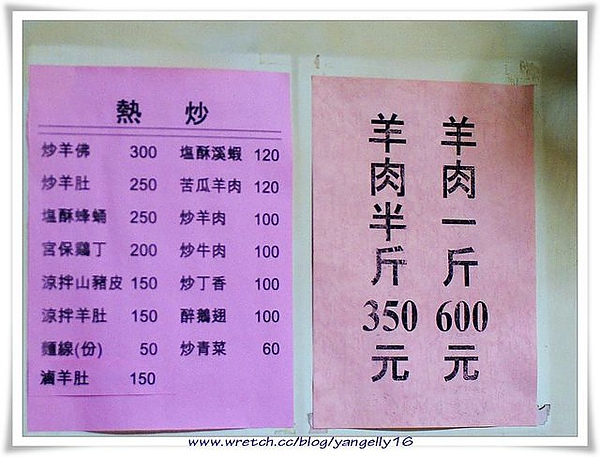 熱 炒
炒羊佛 300 塩酥溪蝦 120
炒羊肚 250 苦瓜羊肉 120
塩酥蜂蛹 250 炒羊肉 100
宮保鷄丁 200 炒牛肉 100
涼拌山豬皮 150 炒丁香 100
涼拌羊肚 150 醉鵝翅 100
麵線(份) 50 炒青菜 60
滷羊肚 150
羊肉一斤600元
羊肉半斤350元
www.wretch.cc/blog/yangelly16